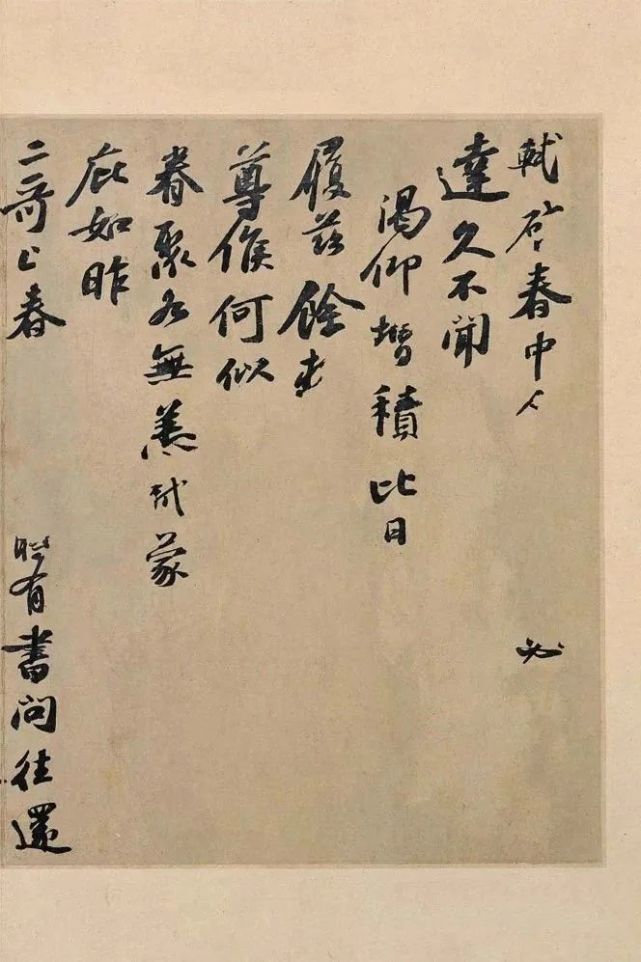 軾啓春中人 必
達久不聞
渴仰增積比日
履茲餘
尊候何似
眷聚各無恙軾蒙
庇如昨
二哥上春 時有書問往還